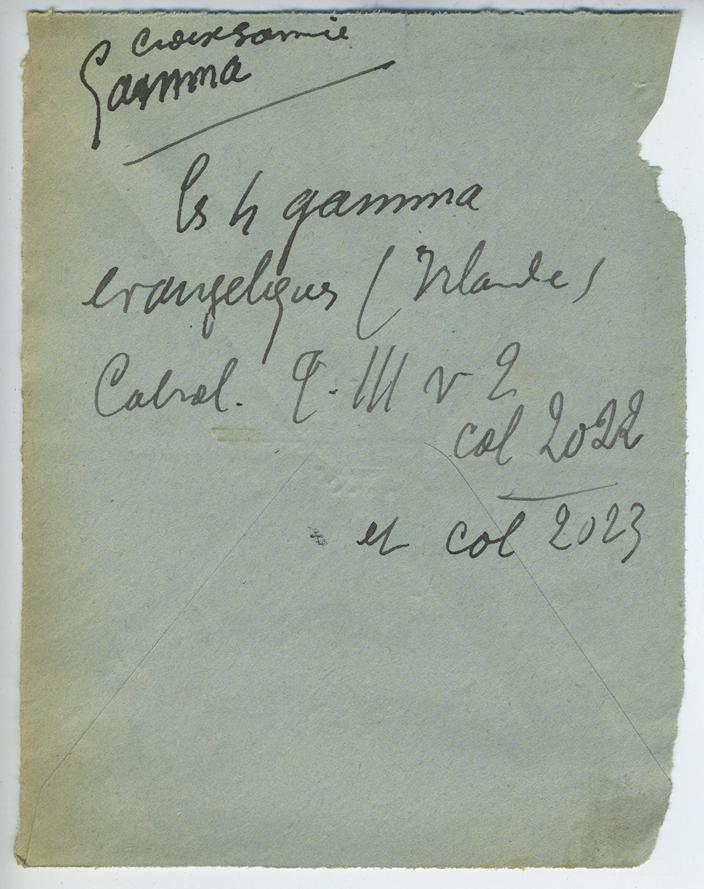 Croix gammée
Gamma
les 4 gamma
evangeliques (Irlande)
Cabrol. T. III v 2
col 2022
et col 2023